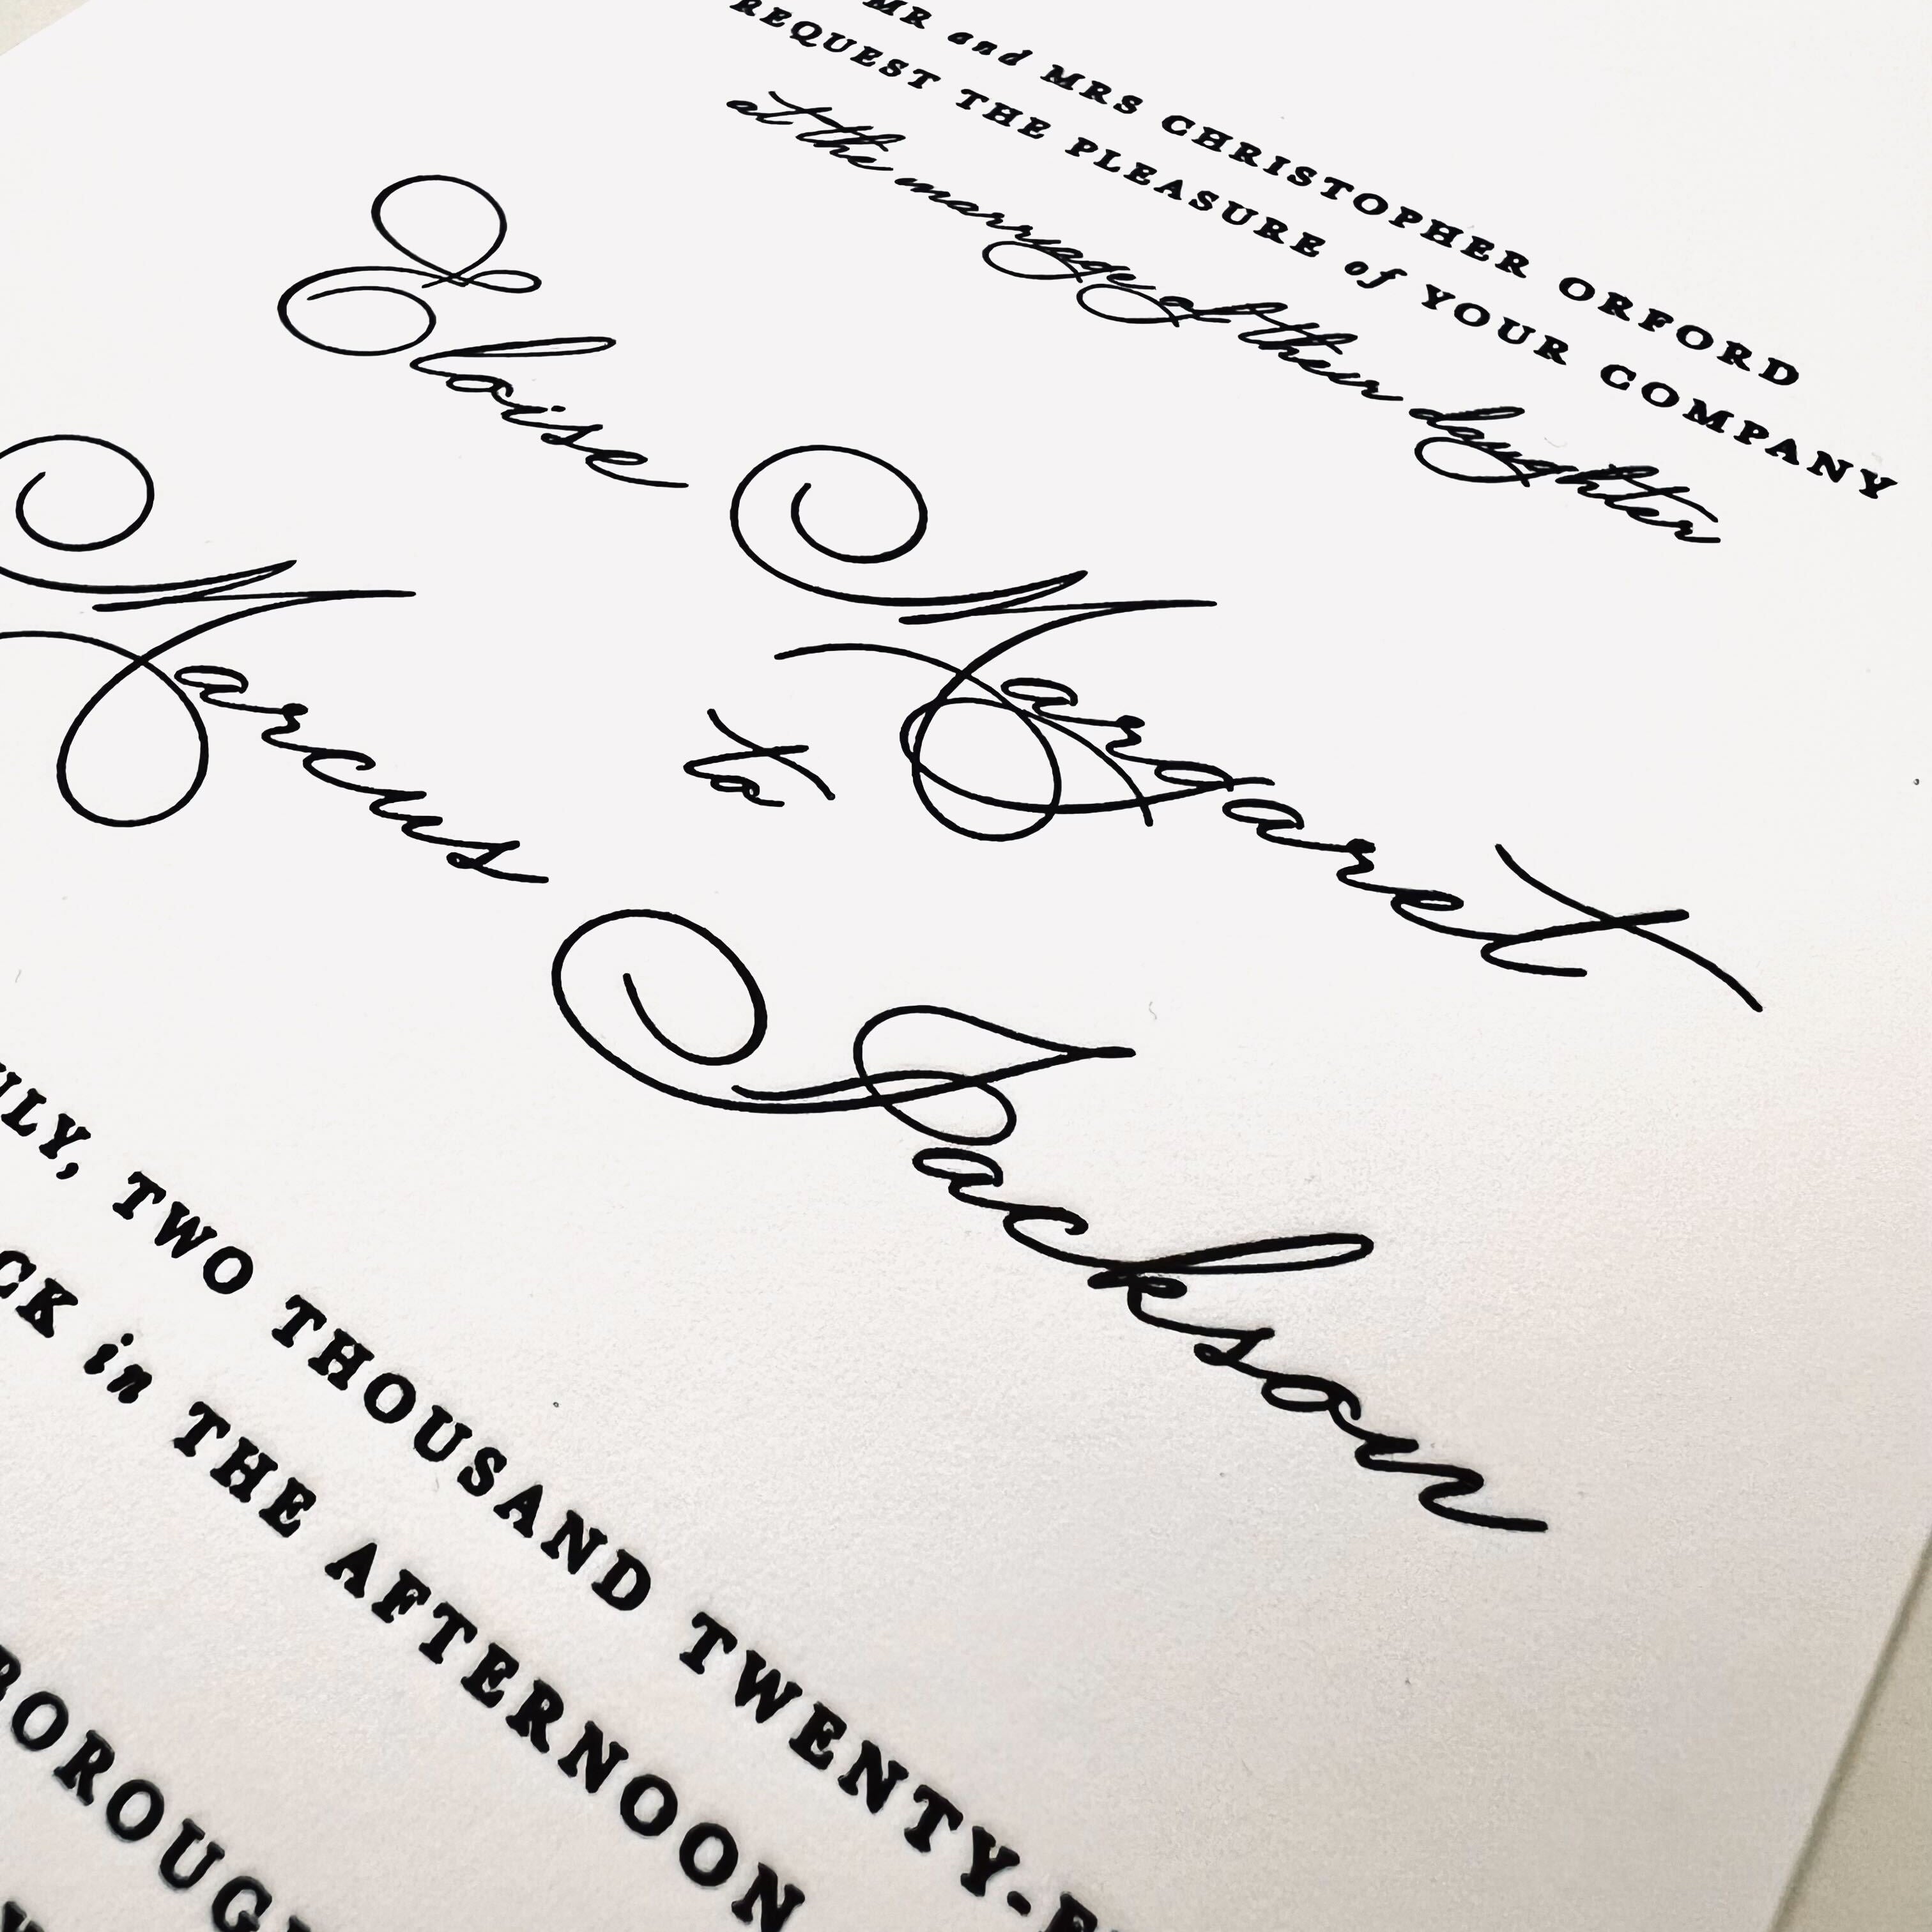 MR and MRS CHRISTOPHER ORFORD
REQUEST THE PLEASURE of YOUR COMPANY
at the marriage of their daughter
Eloise Margaret
to
Marcus Jackson
ULY, TWO THOUSAND TWENTY-
CK in THE AFTERNOON
BOROUG